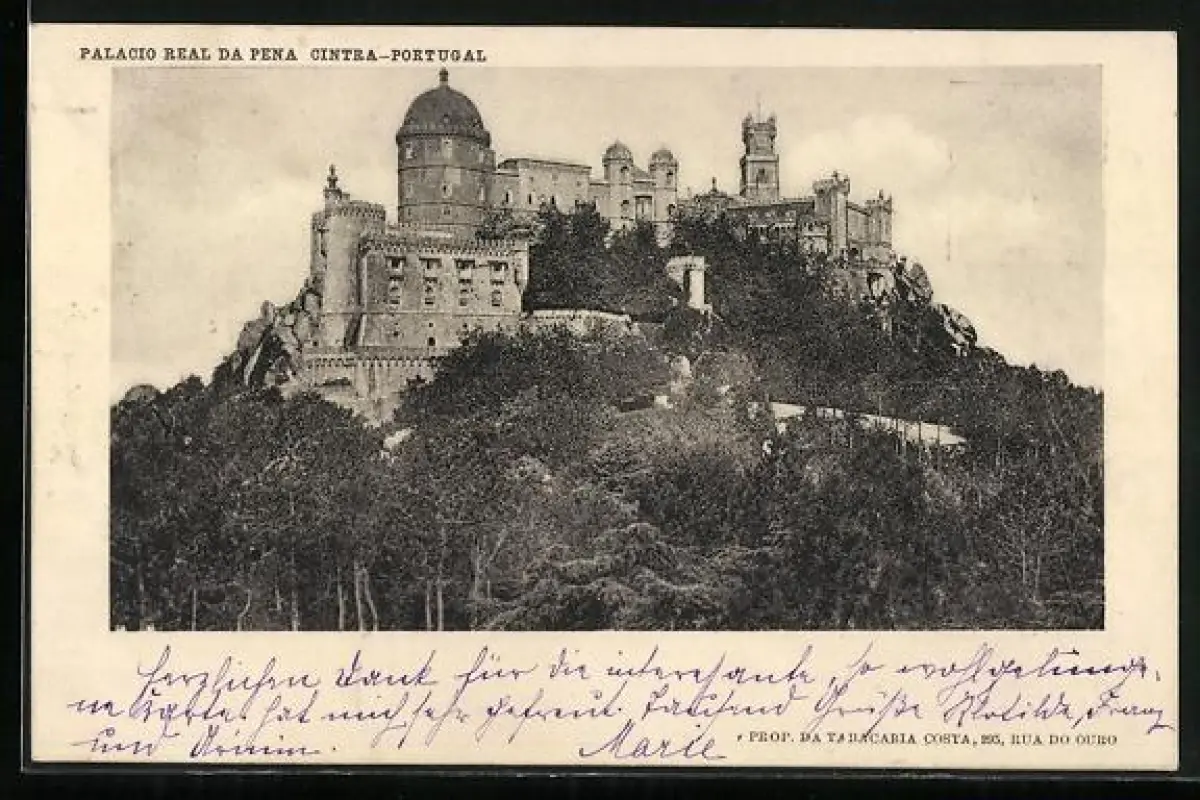 PALACIO REAL DA PENA CINTRA—PORTUGAL
Herzlichen Dank für die interesante, so wohlgelunge-
ne Karte. hat mich sehr gefreut. Tausend Grüße Matilde, Franz
und
Marie
PROP. DA TABACARIA COSTA, 295, RUA DO OURO